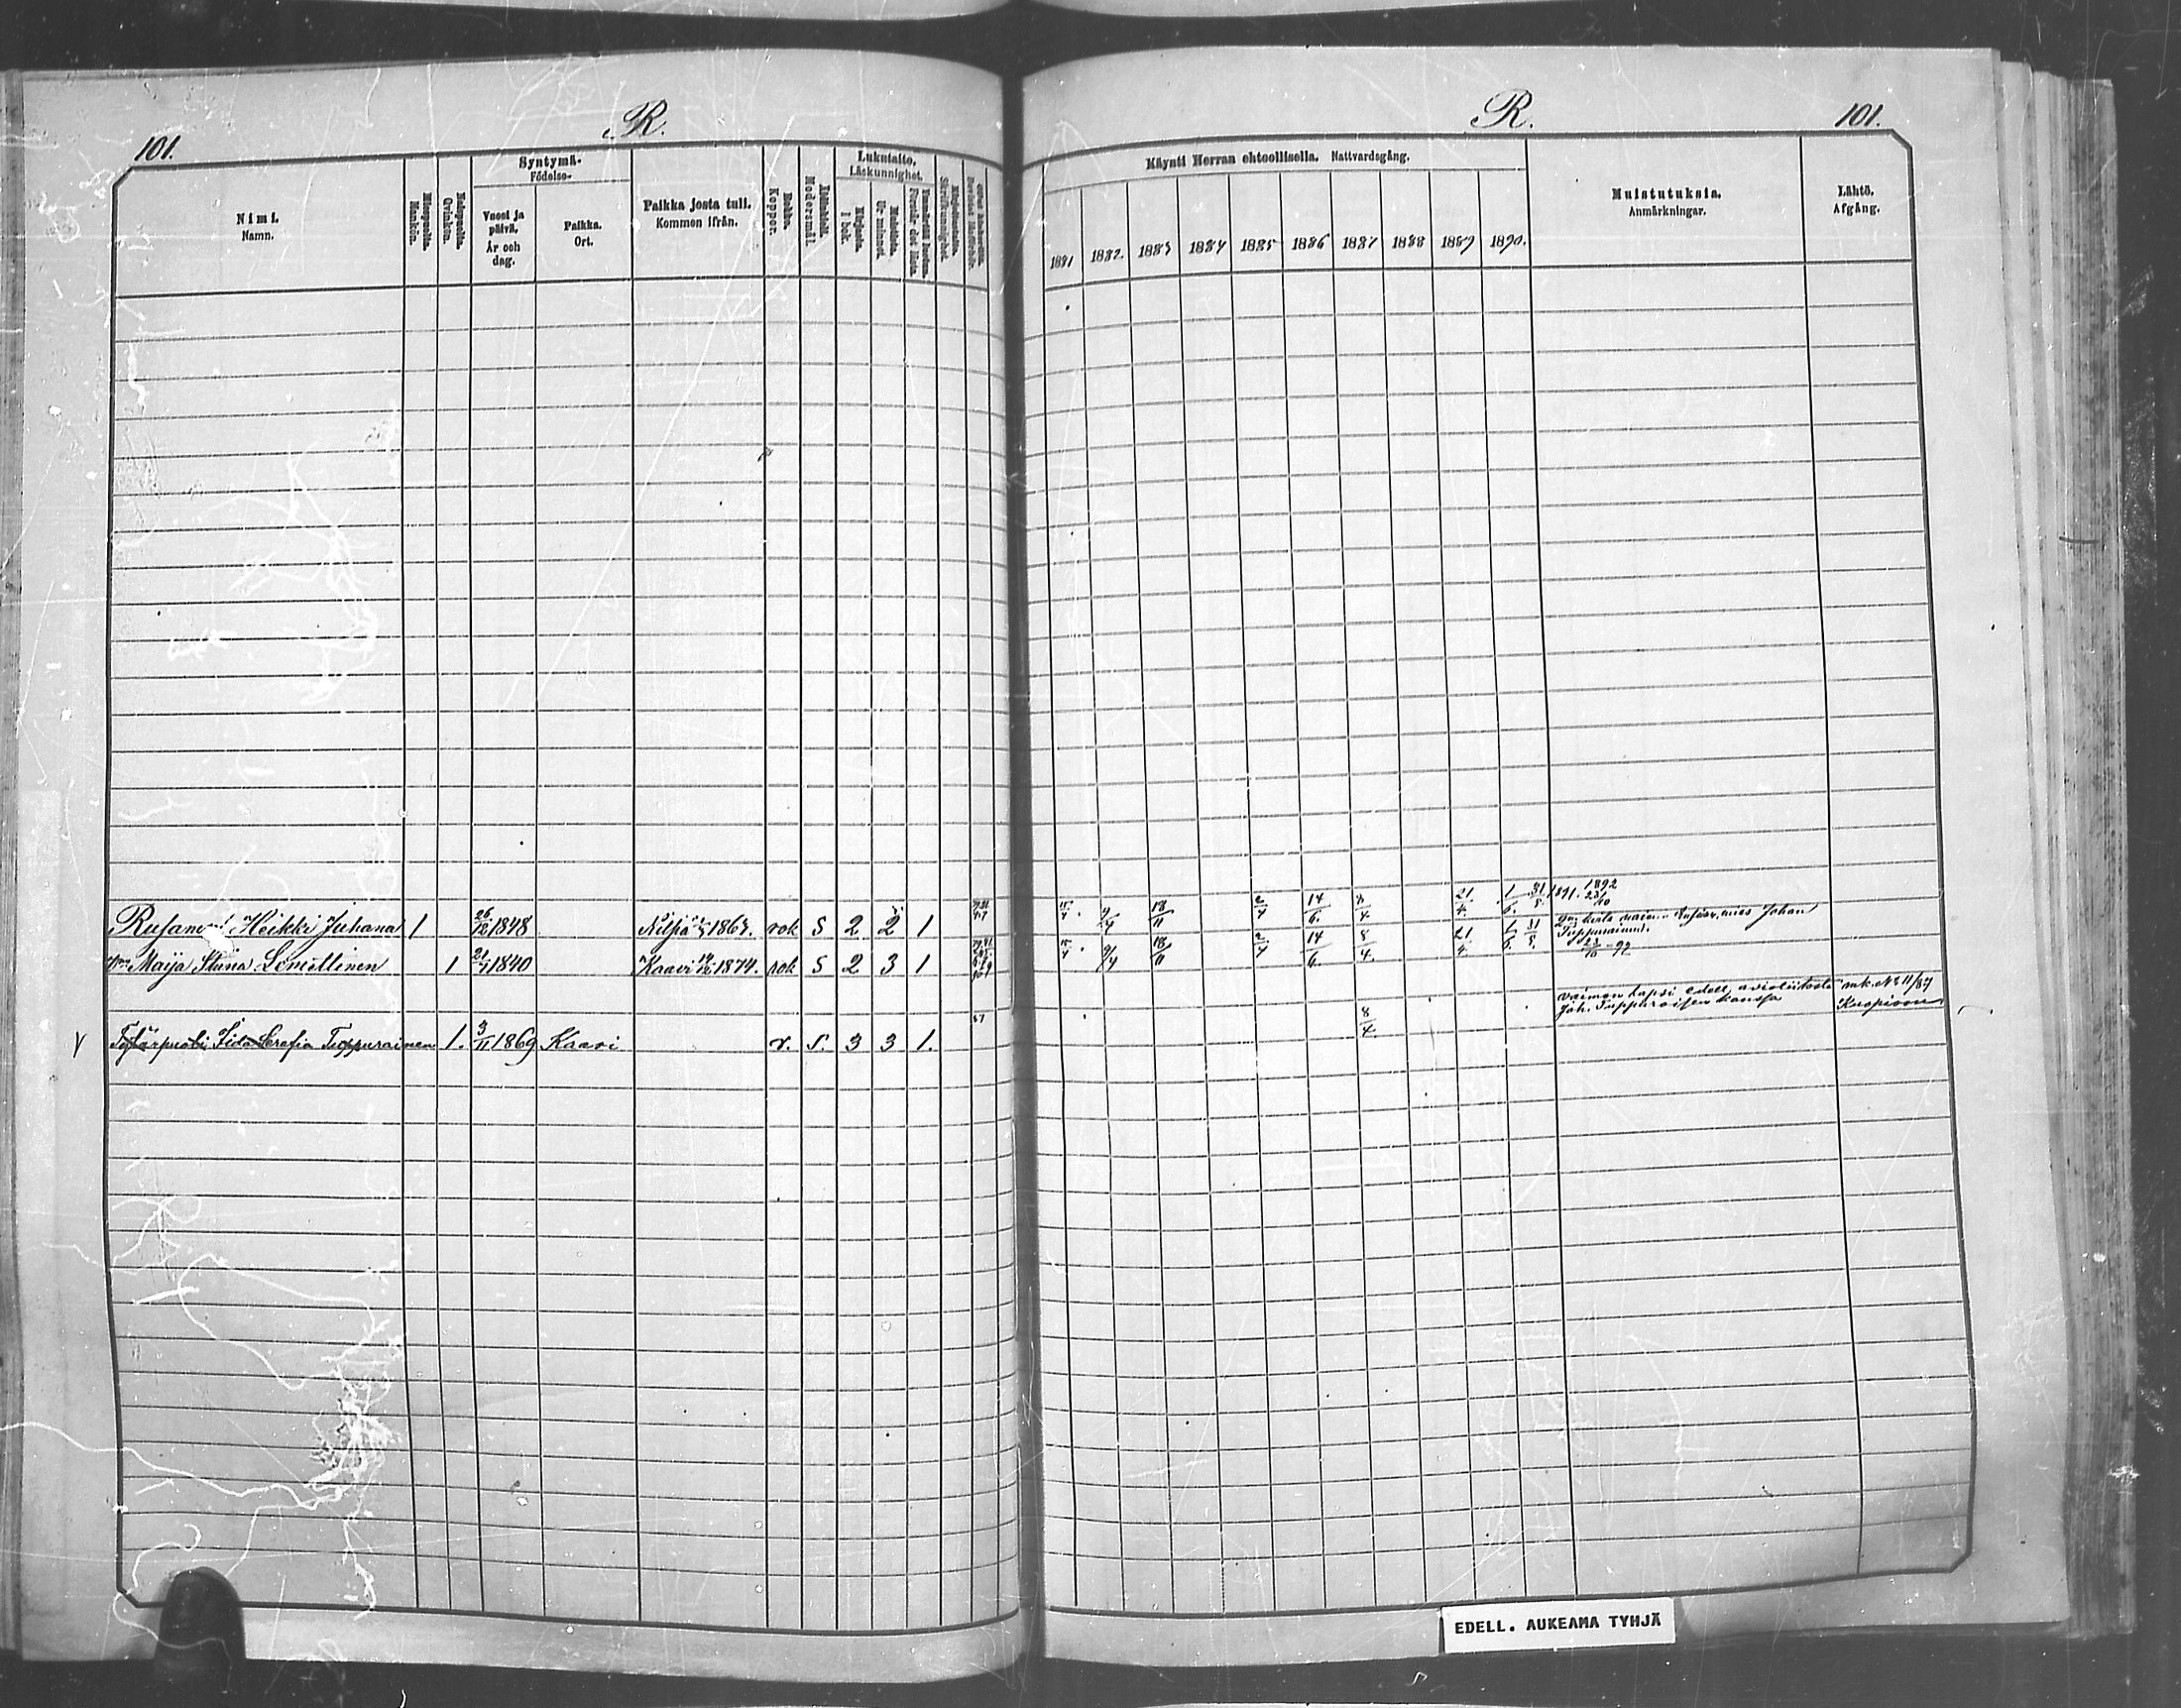 R.
101.
Nimi.
Namn.
Miespuolia.
Mankön.
Vaimopuolia.
Qvinkön.
Syntymä-
Födelse-
Vuosi ja
päivä.
År och
dag.
Paikka.
Ort.
Paikka josta tuli.
Kommen ifrån.
Rokko.
Koppor.
Äidinkieli.
Modersmål.
Lukutaito.
Läskunnighet.
Kirjasta.
I bok.
Ulkoa.
Ur minnet.
Förstår det lästa.
Skrifkunnighet.
Rusanen Heikki Juhana 1 26/12 1848 Nilsiä 1863. rok S 2 2 1
Maija Stiina Lomillinen 1 21/1 1840 Kaavi 14/12 1874. rok S 2 3 1
Tytärpuoli Iida Serafia Tuppurainen 1. 3/11 1869 Kaavi r. S. 3 3 1.
87
R.
101.
Käynti Herran ehtoollisella. Nattvardsgång.
1881 1882. 1883 1884 1885 1886 1887 1888 1889 1890.
Muistutuksia.
Anmärkningar.
Lähtö.
Afgång.
15/4 9/4 18/11 2/4 14/6. 8/4. 21/4. 1/6. 31/5. 1891. 1892 23/10
15/4 9/4 18/11 2/4 14/6. 8/4. 21/4. 1/6. 31/5.
mies Johan
Tuppurainen.
23/10-92
8/4.
vaimon lapsi edell. avioliitosta
Joh. Tuppuraisen kanssa
mk. No 11/87
Kuopioon
EDELL. AUKEAMA TYHJÄ